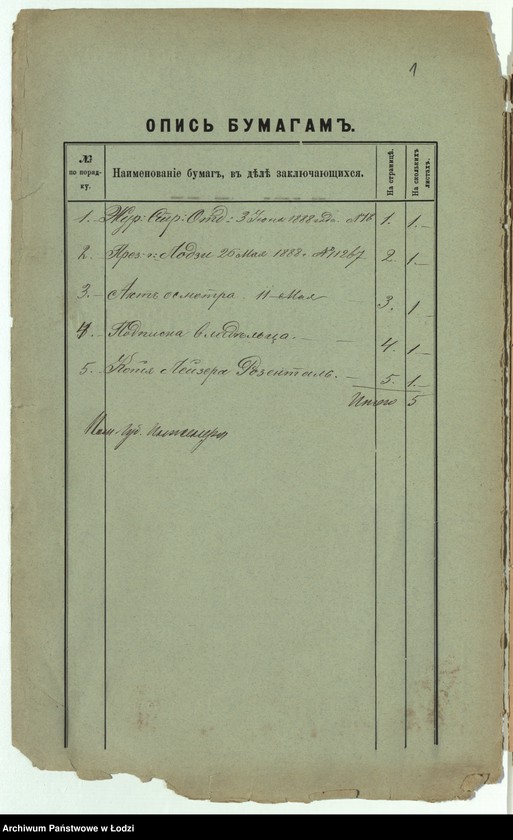 1
ОПИСЬ БУМАГАМЪ.
№ по поряд-ку.
Наименованіе бумагъ, въ дѣлѣ заключающихся.
На страницѣ.
На сколькихъ листахъ.
1. Жур: Стр: Отд: 3 Іюня 1888 1. 1.
2. През: г: Лодзи 26 Мая 1888 г №11267 2. 1
3. Актъ осмотра. 11 Мая 3. 1
4. Подписка владѣльца. 4. 1
5. Копія Лейзера Розенталь. 5. 1.
Итого 5
Пом. Губ. Инженера
Archiwum Państwowe w Łodzi